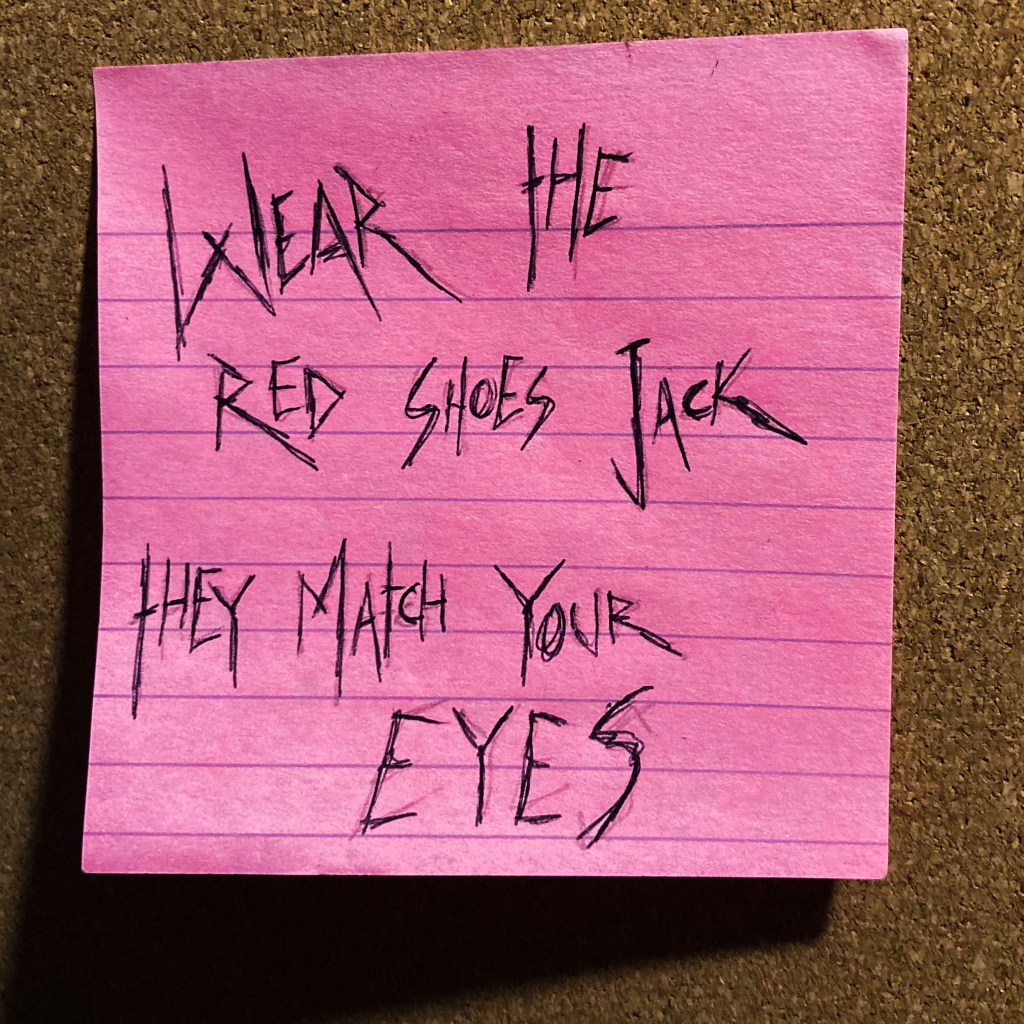 WEAR THE
RED SHOES JACK
THEY MATCH YOUR
EYES